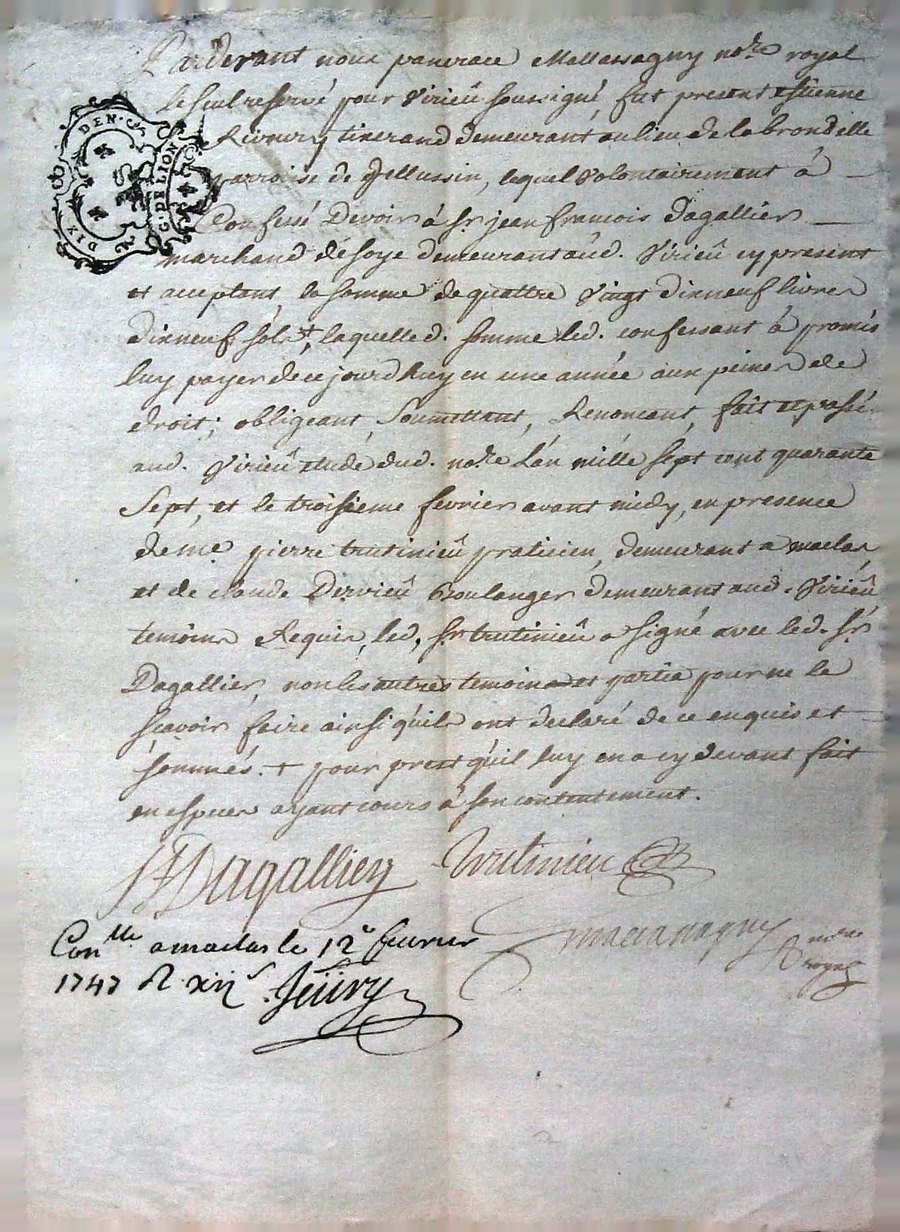 Pardevant nous pancrace Mallassagny no.re royal
le seul reservé pour Virieû soussigné, fut present estienne
tixerand demeurant au lieu de la brondelle
parroisse de pellussin, lequel volontairement à
Confessé Devoir à Sr. jean francois Dagallier
marchand de soye demeurant aud. Virieû cy present
et acceptant, la somme de quattre vingt dixneuf livres
dixneuf sols +, laquelle d. somme led. confessant à promis
luy payer de ce jourd'huy en une année aux peines de
droit; obligeant, Soumettant, Renoncant, fait et passé
aud. Virieû etude dud. no.re L'an mille sept cent quarante
Sept, et le troisieme fevrier avant midy, en presence
de me. pierre trutinieû praticien, demeurant a maclas
et de claude Dervieû Boulanger demeurant aud. Virieû
temoins Requis, led, sr. trutinieû a signé avec led. sr.
Dagallier, non les autres temoins et partie pour ne le
scavoir faire ainsi qu'ils ont declaré de ce enquis et
sommés. + pour prest qu'il luy en a cy devant fait
en especes ayant cours à son contentement.
Dagallier Trutinieu
mallassagny no.re royal
Con.lle a maclas le 12e fevrier
1747 R xii s.
DIX DEN.
G. DE LION